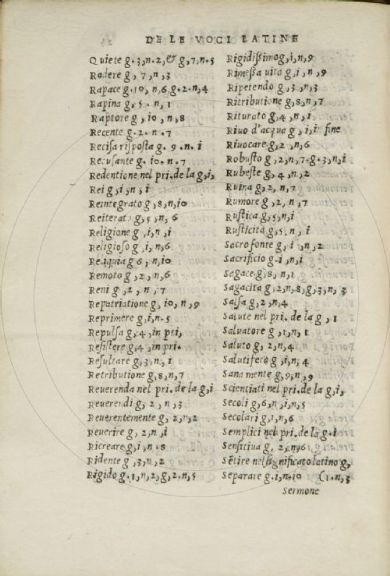 DE LE VOCI LATINE
Quiete g, 3, n. 2, & g, 7, n. 5
Rodere g, 7, n, 3
Rapace g. 10, n, 6 g. 2. n, 4
Rapina g, 5. n, 1
Raptore g, 10, n, 8
Recente g. 2. n. 7
Recisa risposta g. 9. n. i
Recusante g. 10. n. 7
Redentione nel pri. de la g, i,
Rei g, i, n, i
Reintegrato g, 8, n, 10
Reiterat. g, 5, n, 6
Religione g, i, n, i
Religioso g, i, n, 6
Reliquia g 6, n, 10
Remoto g, 2, n, 6
Reni g, 2, n, 7
Repatriatione g, 10, n, 9
Reprimere g, i, n. 5
Repulsa g, 4, in pri,
Resistere g, 4, in pri.
Resultare g, 3, n, 1
Retributione g, 8, n, 7
Reuerenda nel pri. de la g, i
Reuerendi g, 2, n, 3
Reuerentemente g, 2, n, 2
Reuerire g, 2, n, i
Ricreare g, i, n. 8
Ridente g, 3, n, 2
Rigido g, 1, n, 2, g, 2, n, 5
Rigidissimo g, i, n, 9
Rimessa uita g, i, n, 9
Ripetendo g, 3, n, 3
Ritributione g, 8, n, 7
Riturato g, 4, n, 1
Riuo d'acqua g, i, i' fine
Riuocare g, 2, n, 6
Robusto g, 2, n, 7. g. 3, n, i
Rubeste g, 4, n, 2
Ruina g, 2, n, 7
Rumore g, 2, n, 7
Rustica g, 5, n, i
Rusticità g, 5. n, i
Sacro fonte g, i, n, 2
Sacrificio g. 1, n, i
Segace g, 8, n, 1
Sagacita g, 2, n, 8, g, 3, n, 3
Salsa g, 2, n, 4
Salute nel pri. de la g, 1
Saluatore g, 1, n, 1
Saluto g, 2, n, 4
Salutifero g, i, n, 4
Sana mente g, 9, n, 9
Scientiati nel pri. de la g, i,
Secoli g, 6, n, i, n, 5
Secolari g, 1, n, 6
Semplici nel pri. de la g. i
Sensitiua g, 2, n, 6
Sẽtire nel significato latino g,
Separare g, i, n, 10 (1. n, 3
Sermone